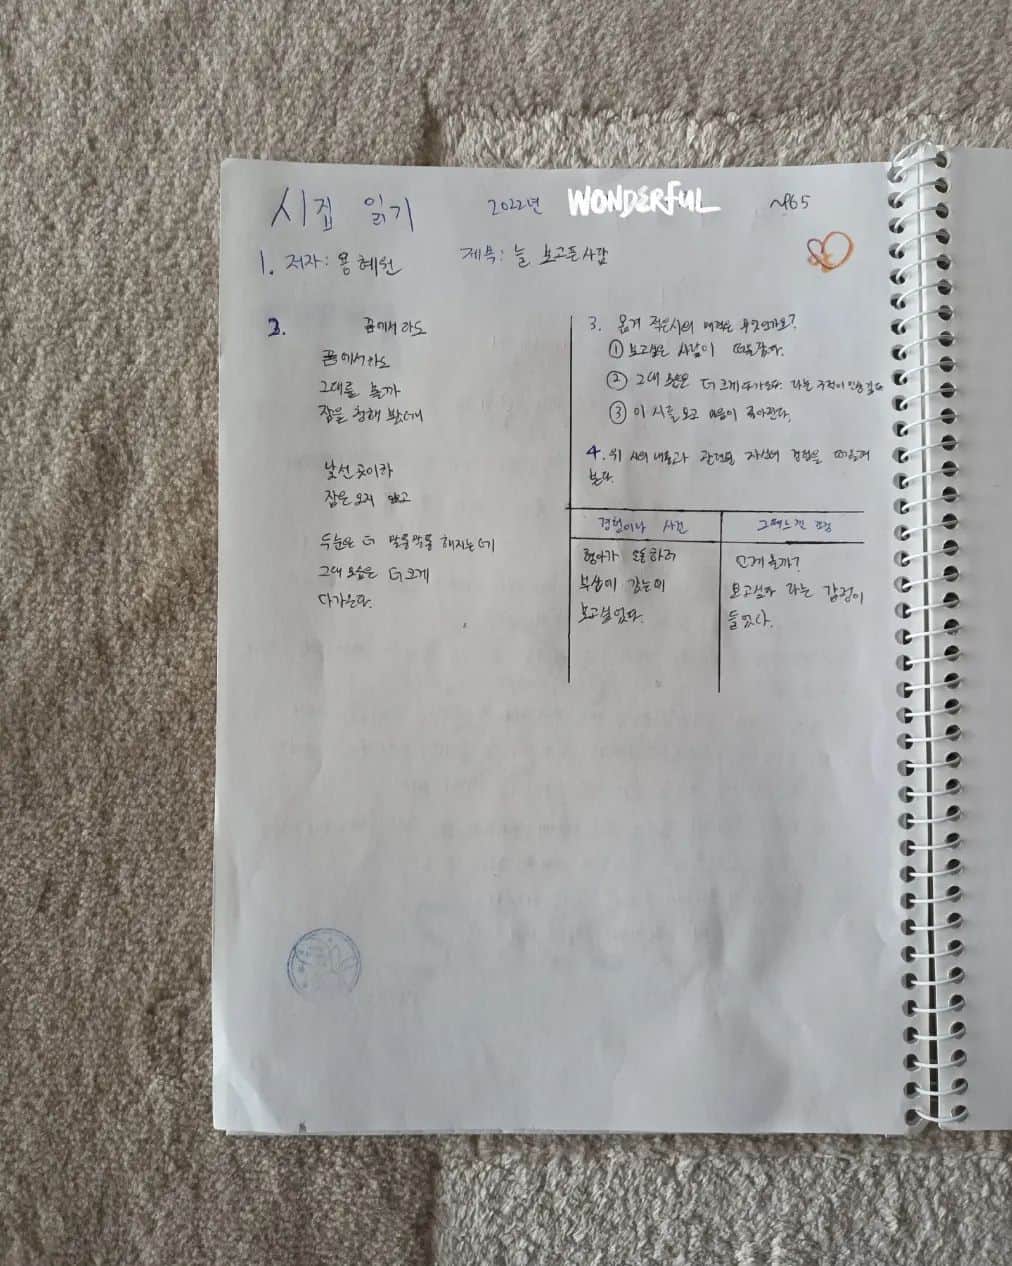 시집 읽기
2022년 WONDERFUL ~p65
1. 저자: 용혜원 제목: 늘 보고픈 사람
2. 꿈에서라도
꿈에서라도
그대를 볼까
잠을 청해 봤는데
낯선 곳이라
잠은 오지 않고
두 눈은 더 말똥말똥 해지는데
그대 모습은 더 크게
다가온다.
3. 옮겨 적은시의 매력은 무엇인가요?
① 보고싶은 사람이 떠오른다.
② 그대 모습은 더 크게 다가온다. 라는 구절이 인상깊다
③ 이 시를 보고 마음이 녹아란다.
4. 위 시의 내용과 관련된 자신의 경험을 떠올려
본다.
경험이나 사건
그때 느낀 감정
형아가 운동하러
부산에 갔는데
보고싶었다.
언제 올까?
보고싶다 라는 감정이
들었다.